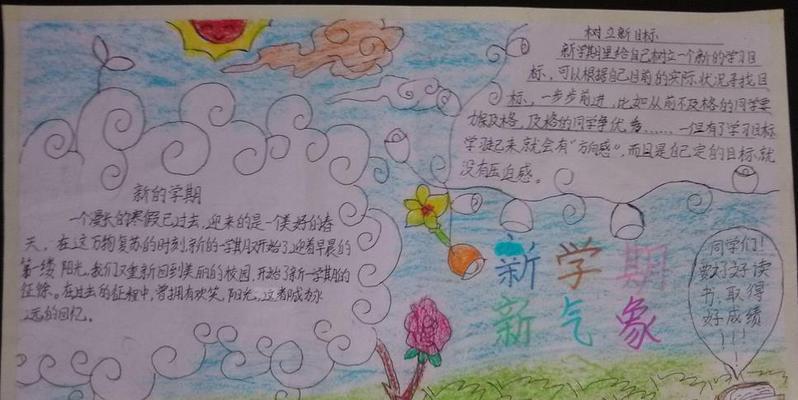 新的学期
一个漫长的寒假已过去,迎来的是一个美好的春
天,在这万物复苏的时刻,新的一学期又开始了,迎着早晨的
第一缕阳光,我们又重新回到美丽的校园,开始了新一学期的
征途。在过去的征程中,曾拥有欢笑,阳光,这都成为永
远的回忆。
树立新目标
新学期里给自己树立一个新的学习目
标,可以根据自己目前的实际状况寻找目
标,一步步前进,比如从前不及格的同学要
力埃及格,及格的同学争优秀……一但有了学习目标
学习起来,就会有“方向感”,而且是自己定的目标,就
没有压迫感。
新学期
新气象
同学们!
要好好读
书,取得
好成绩
!!!